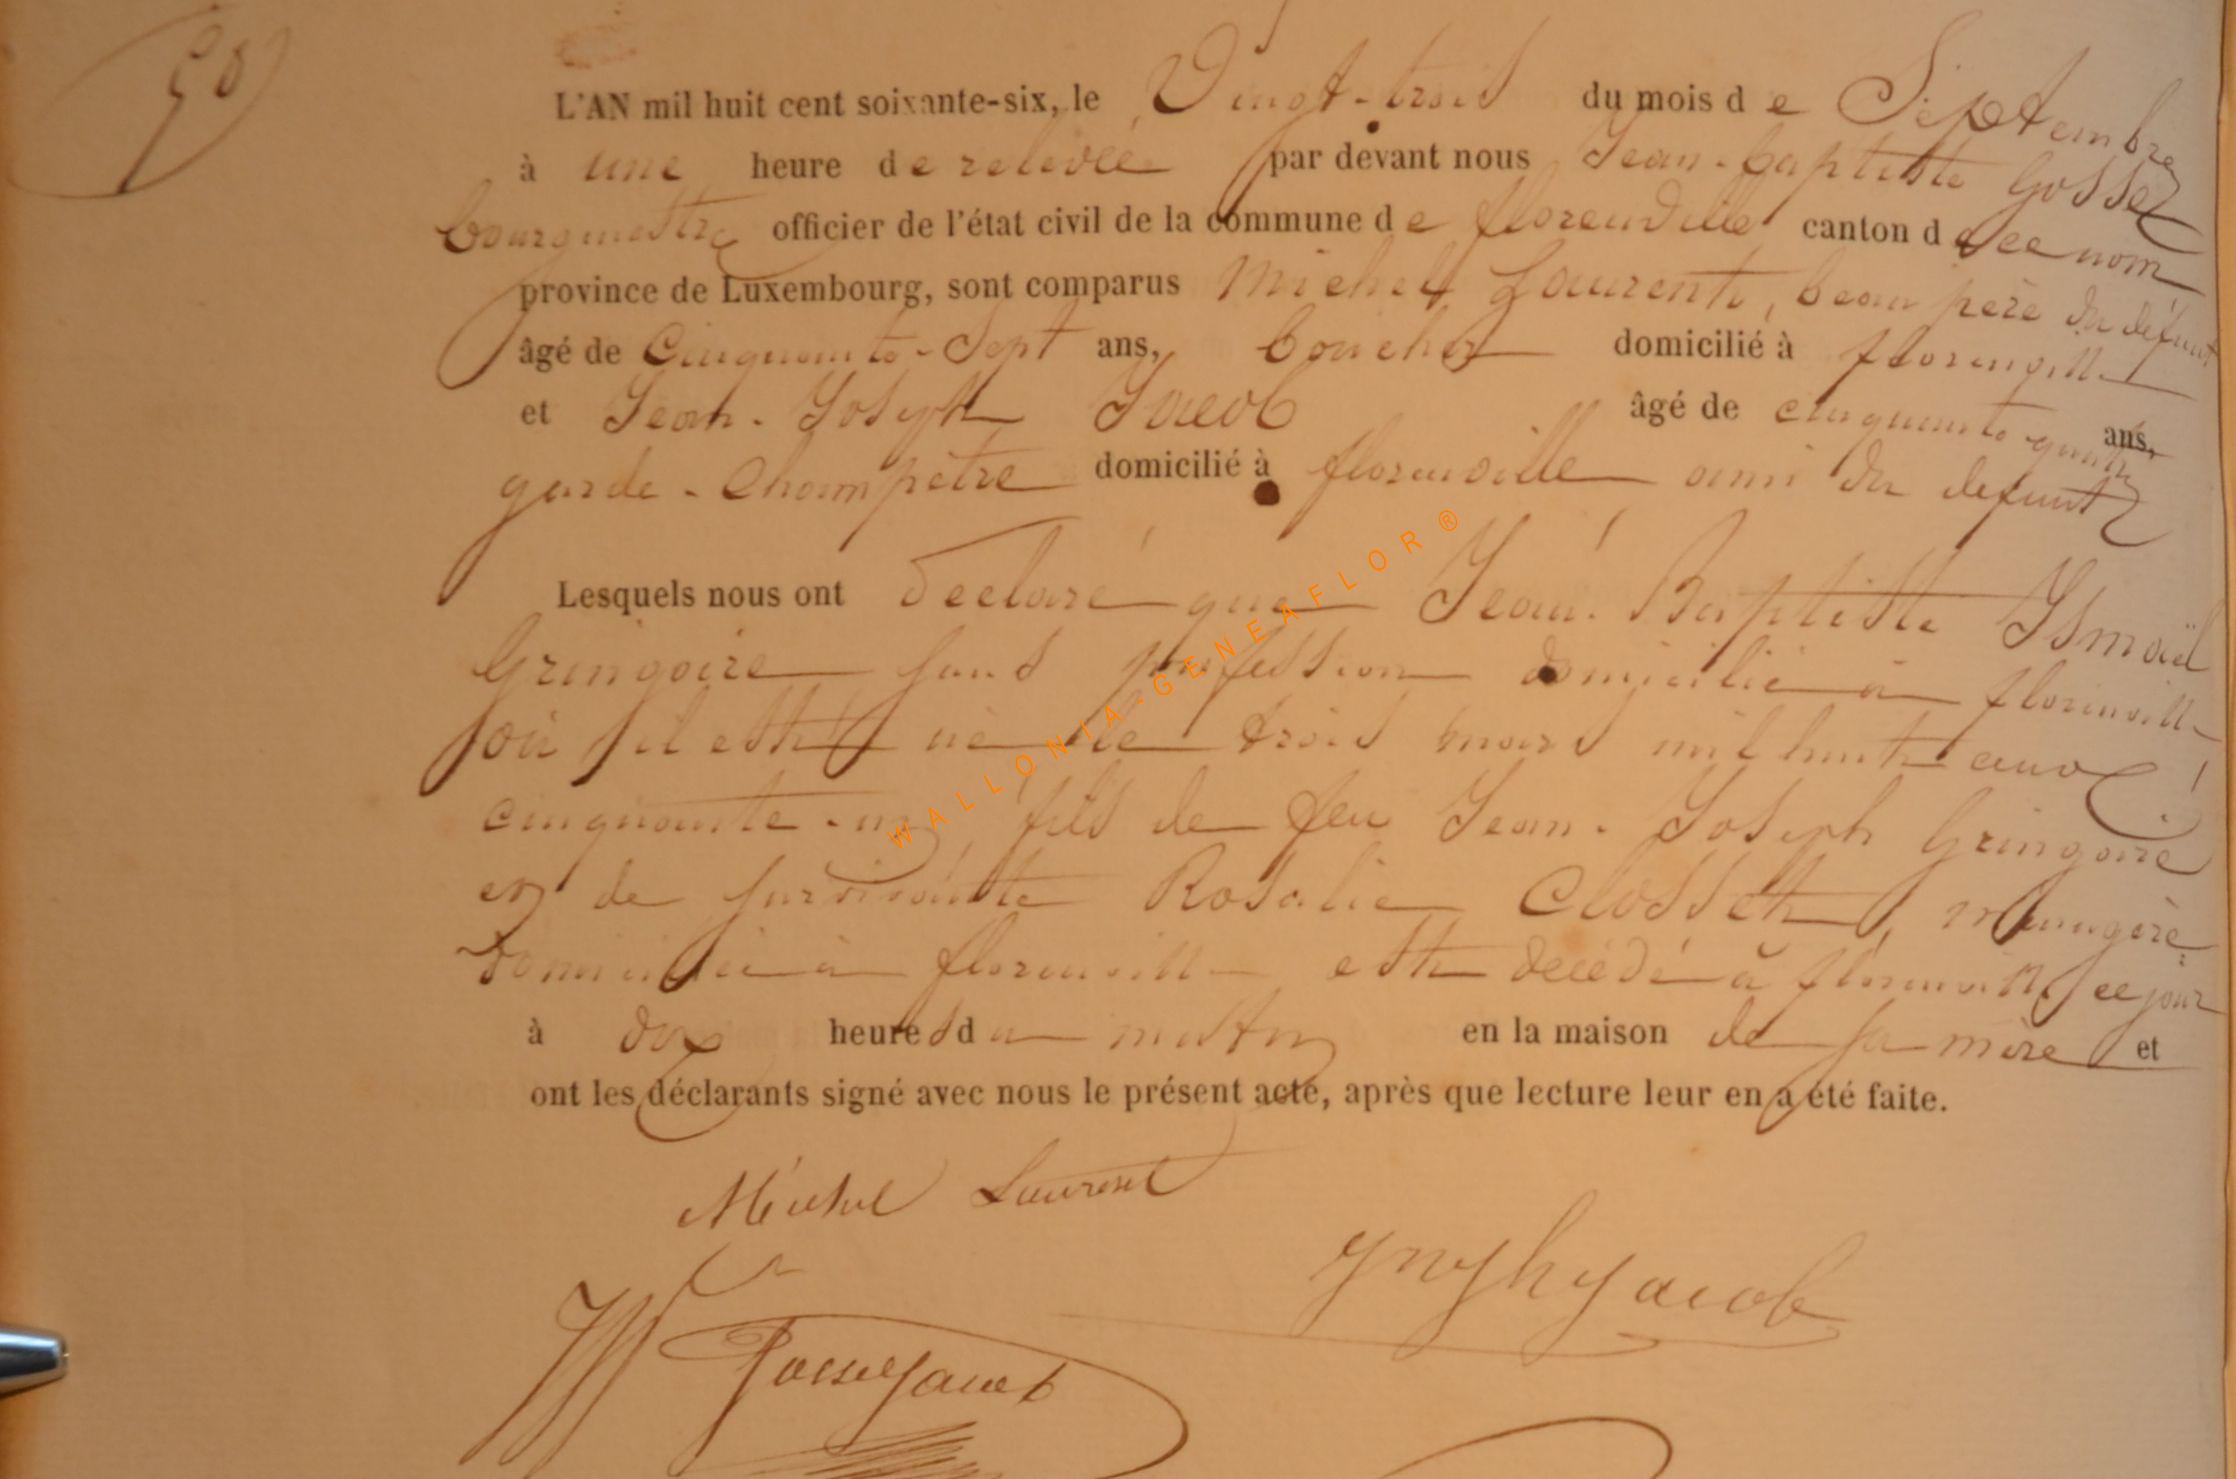 50
L'AN mil huit cent soixante-six, le Vingt-trois du mois de Septembre
à une heure de relevée par devant nous Jean-baptiste Gosse
bourgmestre officier de l'état civil de la commune de florenville canton de ce nom
province de Luxembourg, sont comparus Michel Laurent, beau père du défunt
âgé de Cinquante-Sept ans, boucher domicilié à florenville
et Jean-Joseph Jacob âgé de cinquante-quatre ans,
garde-Champêtre domicilié à florenville ami du defunt
Lesquels nous ont declaré que Jean-Baptiste Ismaël
Gringoire sans profession domicilié à florenville
où il est né le trois mars mil huit cent
cinquante-un, fils de feu Jean-Joseph Gringoire
et de survivante Rosalie Closset, ménagère
domiciliée à florenville est décédé à florenville, ce jour
à dix heures du matin en la maison de sa mère et
ont les déclarants signé avec nous le présent acte, après que lecture leur en a été faite.
Michel Laurent
Jacob
WALLONIA-GENEAFLOR®